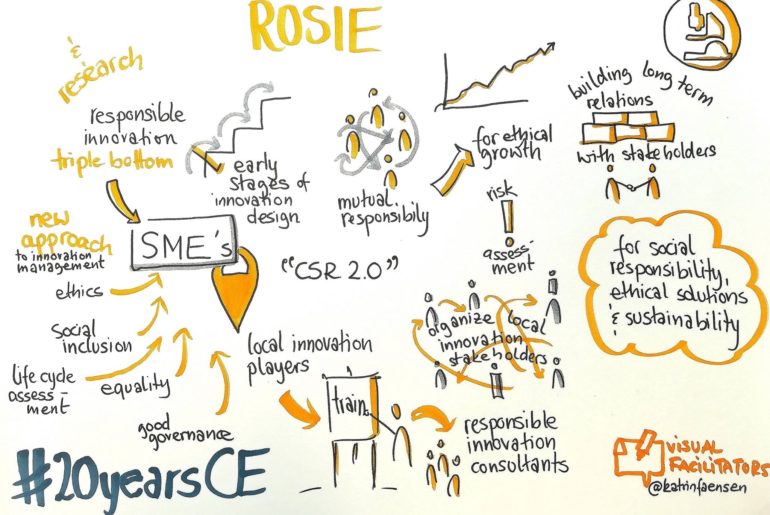 ROSIE
&
research
responsible
innovation
triple bottom
early
stages of
innovation
design
mutual
responsibily
for ethical
growth
building long term
relations
with stakeholders
new
approach
to innovation
management
SME's
"CSR 2.0"
risk
assess-
ment
for social
responsibility,
ethical solutions
& sustainability
ethics
social
inclusion
life cycle
assess-
ment
equality
good
governance
local innovation
players
train
organize local
innovation
stakeholders
responsible
innovation
consultants
#20yearsCE
VISUAL
FACILITATORS
@katrinfaensen